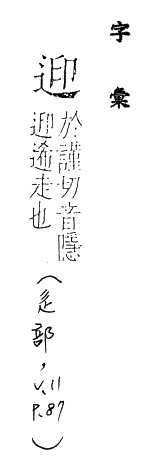 字彙
迎
於謹切音隱
迎遙走也
(辵部,V.11
P.87)